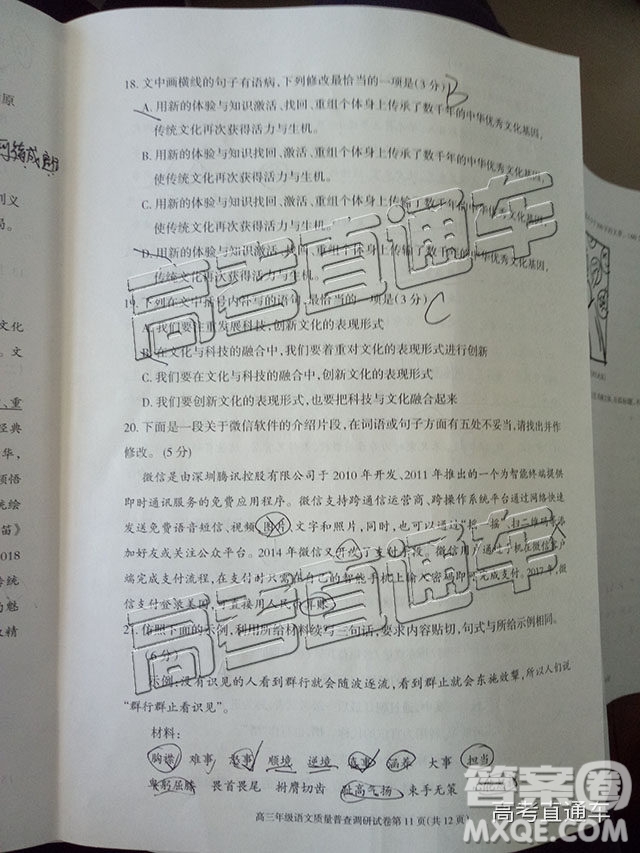 原
18. 文中画横线的句子有语病,下列修改最恰当的一项是(3分) B
A. 用新的体验与知识激活、找回、重组个体身上传承了数千年的中华优秀文化基因,
传统文化再次获得活力与生机。
B. 用新的体验与知识找回、激活、重组个体身上传承了数千年的中华优秀文化基因,
使传统文化再次获得活力与生机。
C. 用新的体验与知识激活、重组个体身上传输了数千年的中华优秀文化基因,
使传统文化再次获得活力与生机。
D. 用新的体验与知识激活、找回、重组个体身上传输了数千年的中华优秀文化基因,
传统文化再次获得活力与生机。
19. 下列在文中括号内补写的语句,最恰当的一项是(3分) C
A. 我们要注重发展科技,创新文化的表现形式
B. 在文化与科技的融合中,我们要着重对文化的表现形式进行创新
C. 我们要在文化与科技的融合中,创新文化的表现形式
D. 我们要创新文化的表现形式,也要把科技与文化融合起来
20. 下面是一段关于微信软件的介绍片段,在词语或句子方面有五处不妥当,请找出并作
修改。(5分)
微信是由深圳腾讯控股有限公司于2010年开发、2011年推出的一个为智能终端提供
即时通讯服务的免费应用程序。微信支持跨通信运营商、跨操作系统平台通过网络快速
发送免费语音短信、视频、图片、文字和照片,同时,也可以通过“摇一摇”、扫二维码等添
加好友或关注公众平台。2014年微信又开发了支付手段。微信用户通过手机在微信客户
端完成支付流程,在支付时只需在自己的智能手机上输入密码即可完成支付。2017年,微
信支付登录美国,可直接用人民币
21. 仿照下面的示例,利用所给材料续写三句话,要求内容贴切,句式与所给示例相同。
(6分)
示例:没有识见的人看到群行就会随波逐流,看到群止就会东施效颦,所以人们说
“群行群止看识见”。
材料:
胸襟 难事 顺境 逆境 涵养 大事 担当
卑躬屈膝 畏首畏尾 捐膺切齿 趾高气扬 束手无策
高三年级语文质量普查调研试卷第11页(共12页)
高考直通车
高考直通车
答案圈
高考直通车